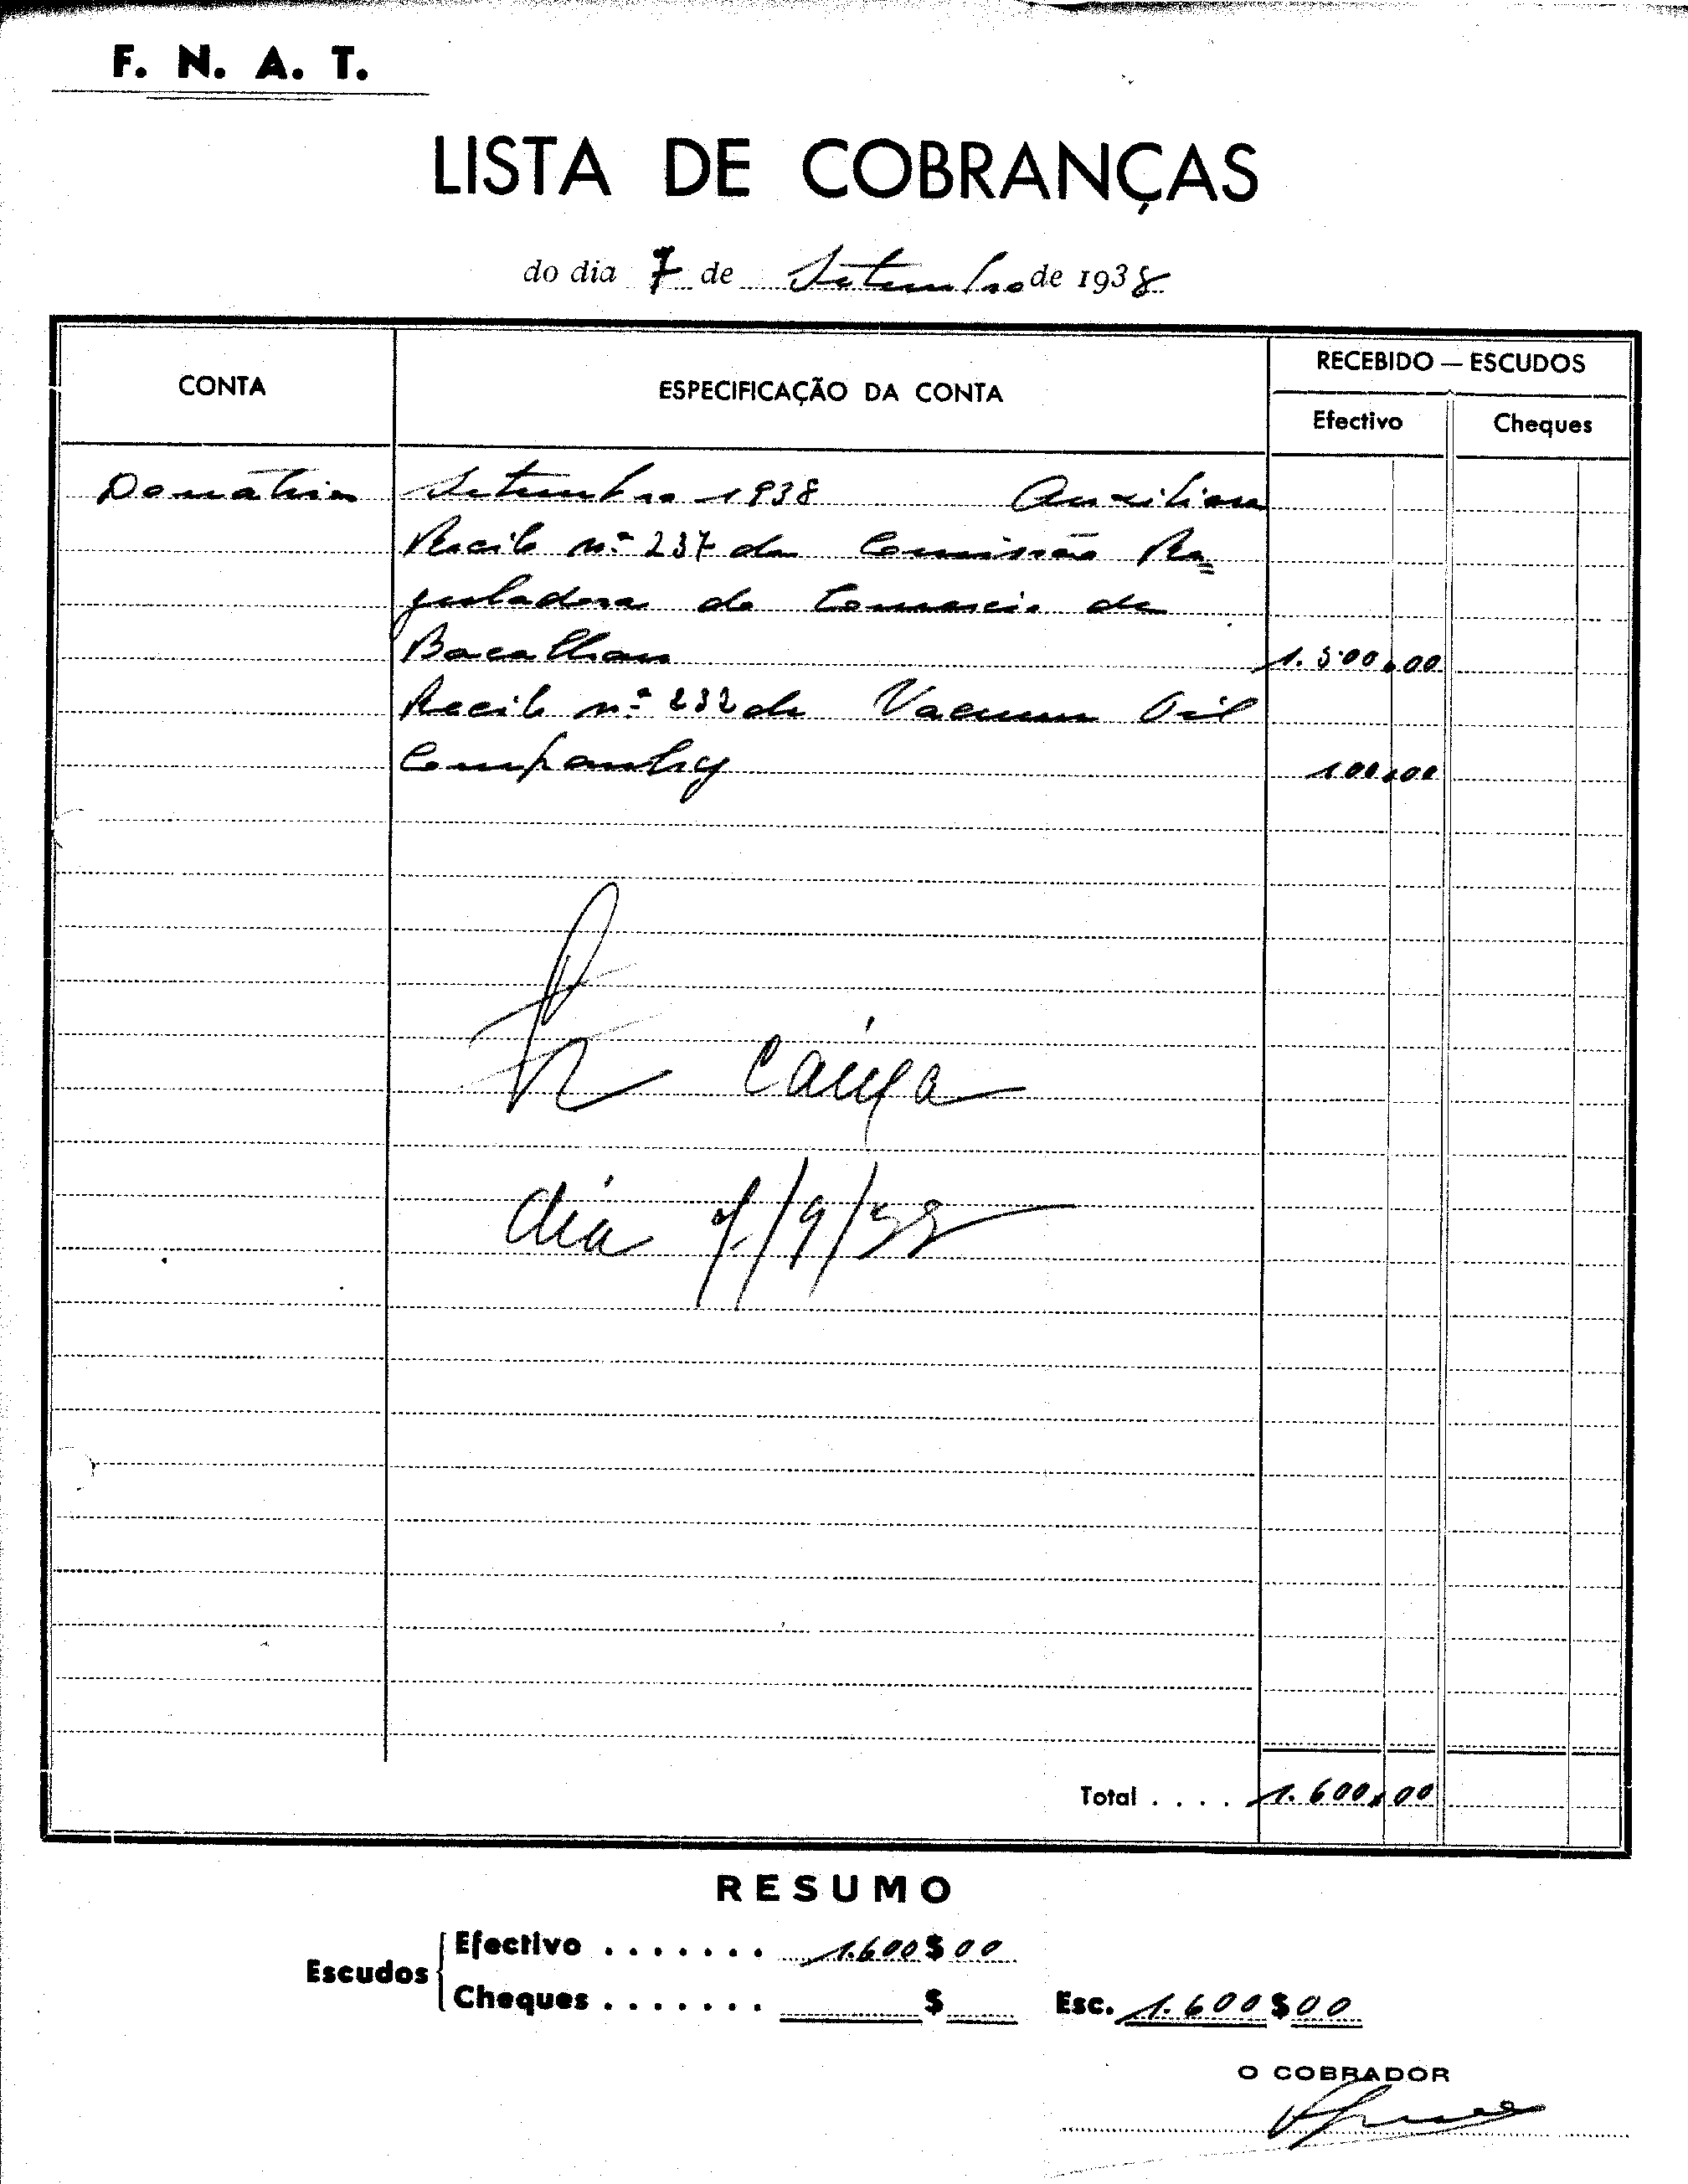 F. N. A. T.
LISTA DE COBRANÇAS
do dia 7 de Setembro de 1938
CONTA
ESPECIFICAÇÃO DA CONTA
RECEBIDO — ESCUDOS
Efectivo
Cheques
Donativos Setembro 1938
Recibo n.º 237 da Comissão Re=
guladora do Comercio de
Bacalhau 1.500,00
Recibo n.º 232 da Vacuum Oil
Companhy 100,00
Caixa
dia 7/9/38
Total . . . . 1.600,00
RESUMO
Escudos
Efectivo . . . . . . . 1.600$00
Cheques . . . . . . . $
Esc. 1.600$00
O COBRADOR